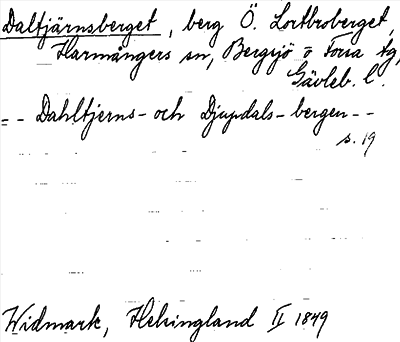 Daltjärnsberget, berg Ö. Lortbroberget,
Harmångers sn, Bergsjö o Forsa tg,
Gävleb. l.
= - Dahltjerns- och Djupdals-bergen - -
s. 19
Widmark, Helsingland II 1849